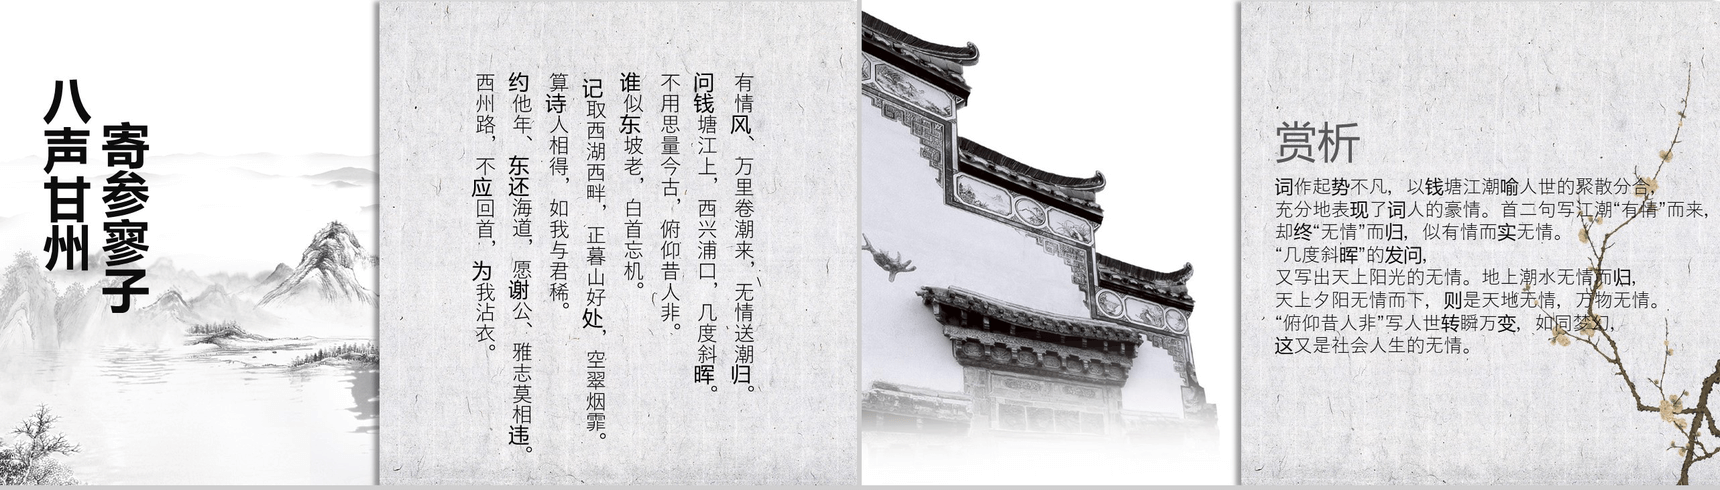 八声甘州
寄参寥子
有情风、万里卷潮来，无情送潮归。
问钱塘江上，西兴浦口，几度斜晖。
不用思量今古，俯仰昔人非。
谁似东坡老，白首忘机。
记取西湖西畔，正暮山好处，空翠烟霏。
算诗人相得，如我与君稀。
约他年、东还海道，愿谢公、雅志莫相违。
西州路，不应回首，为我沾衣。
赏析
词作起势不凡，以钱塘江潮喻人世的聚散分合，
充分地表现了词人的豪情。首二句写江潮“有情”而来，
却终“无情”而归，似有情而实无情。
“几度斜晖”的发问，
又写出天上阳光的无情。地上潮水无情而归，
天上夕阳无情而下，则是天地无情，万物无情。
“俯仰昔人非”写人世转瞬万变，如同梦幻，
这又是社会人生的无情。